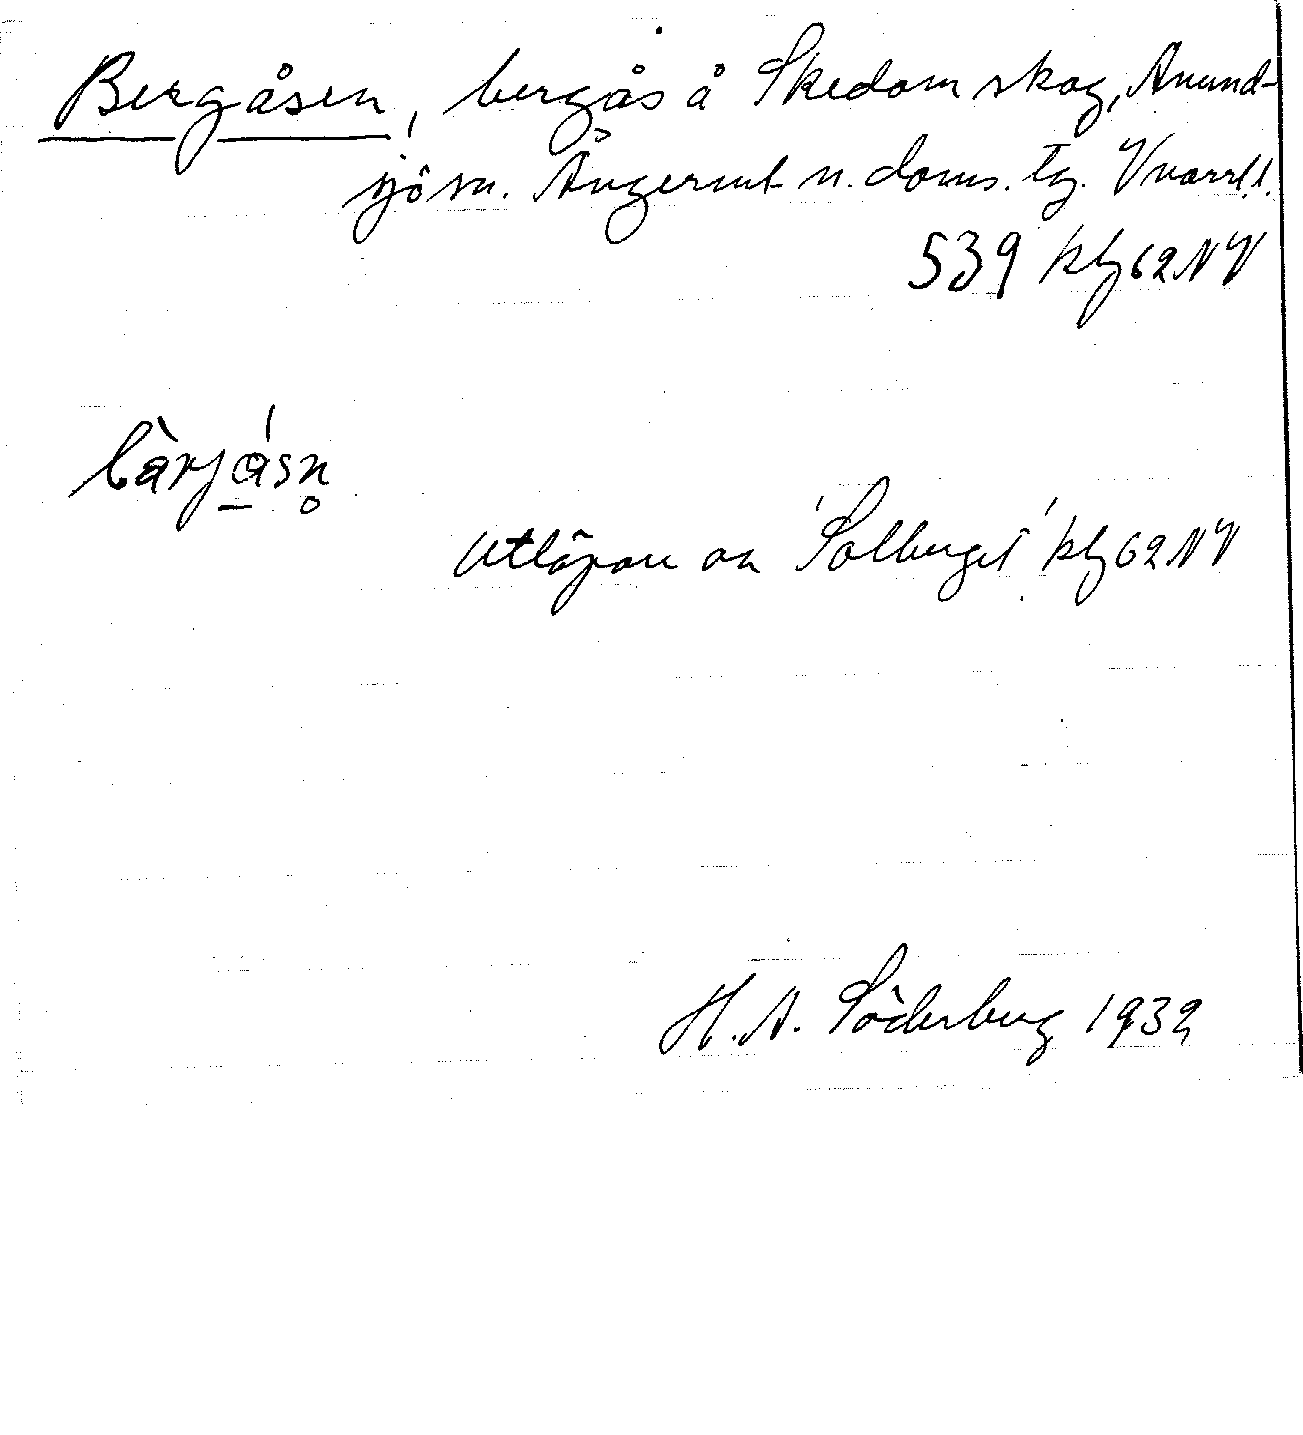 Bergåsen, bergås å Skedom skog, Anund-
sjö sn. Ångerml n. doms. tg. Vnorrl l.
539 kbl 62 NV
bàrjåsn̥
Utlöpare av 'Solberget' kbl 62 NV
H. A. Söderberg 1932